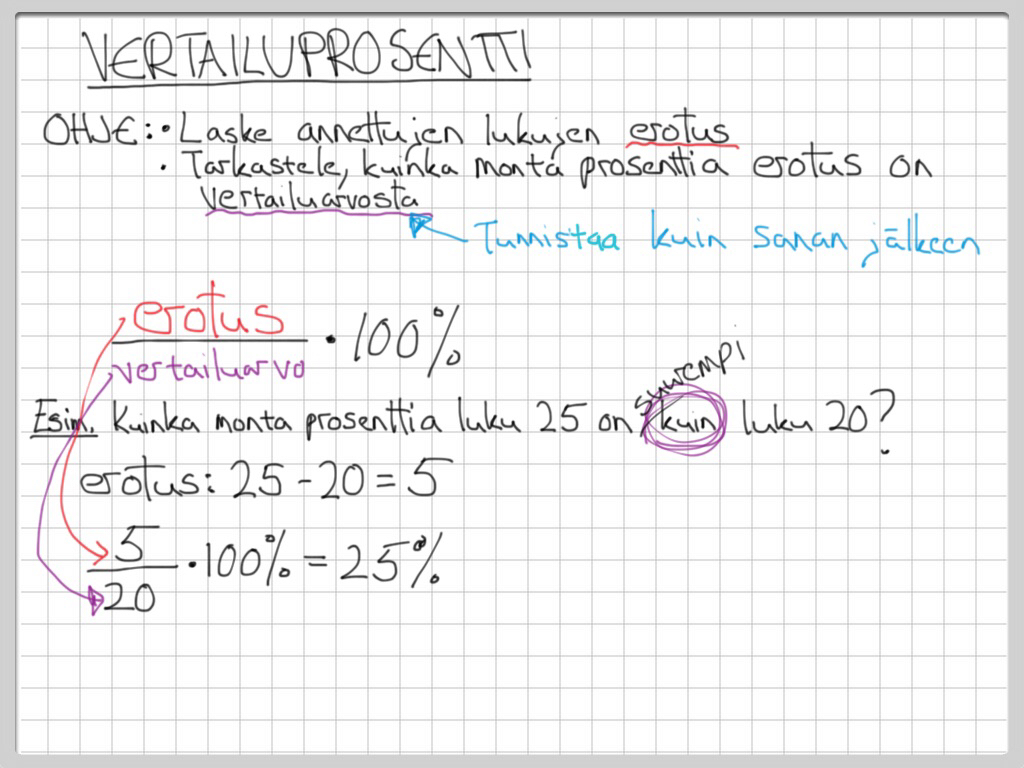 VERTAILUPROSENTTI
OHJE: • Laske annettujen lukujen erotus
• Tarkastele, kuinka monta prosenttia erotus on
vertailuarvosta
Tunnistaa kuin sanan jälkeen
erotus
vertailuarvo
• 100%
suurempi
Esim. Kuinka monta prosenttia luku 25 on kuin luku 20?
erotus: 25 - 20 = 5
5
20
• 100% = 25%